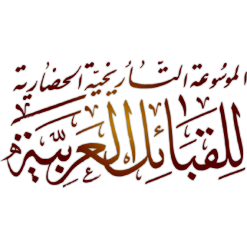 الموسوعة التأريخية الحضارية
للقبائل العربية